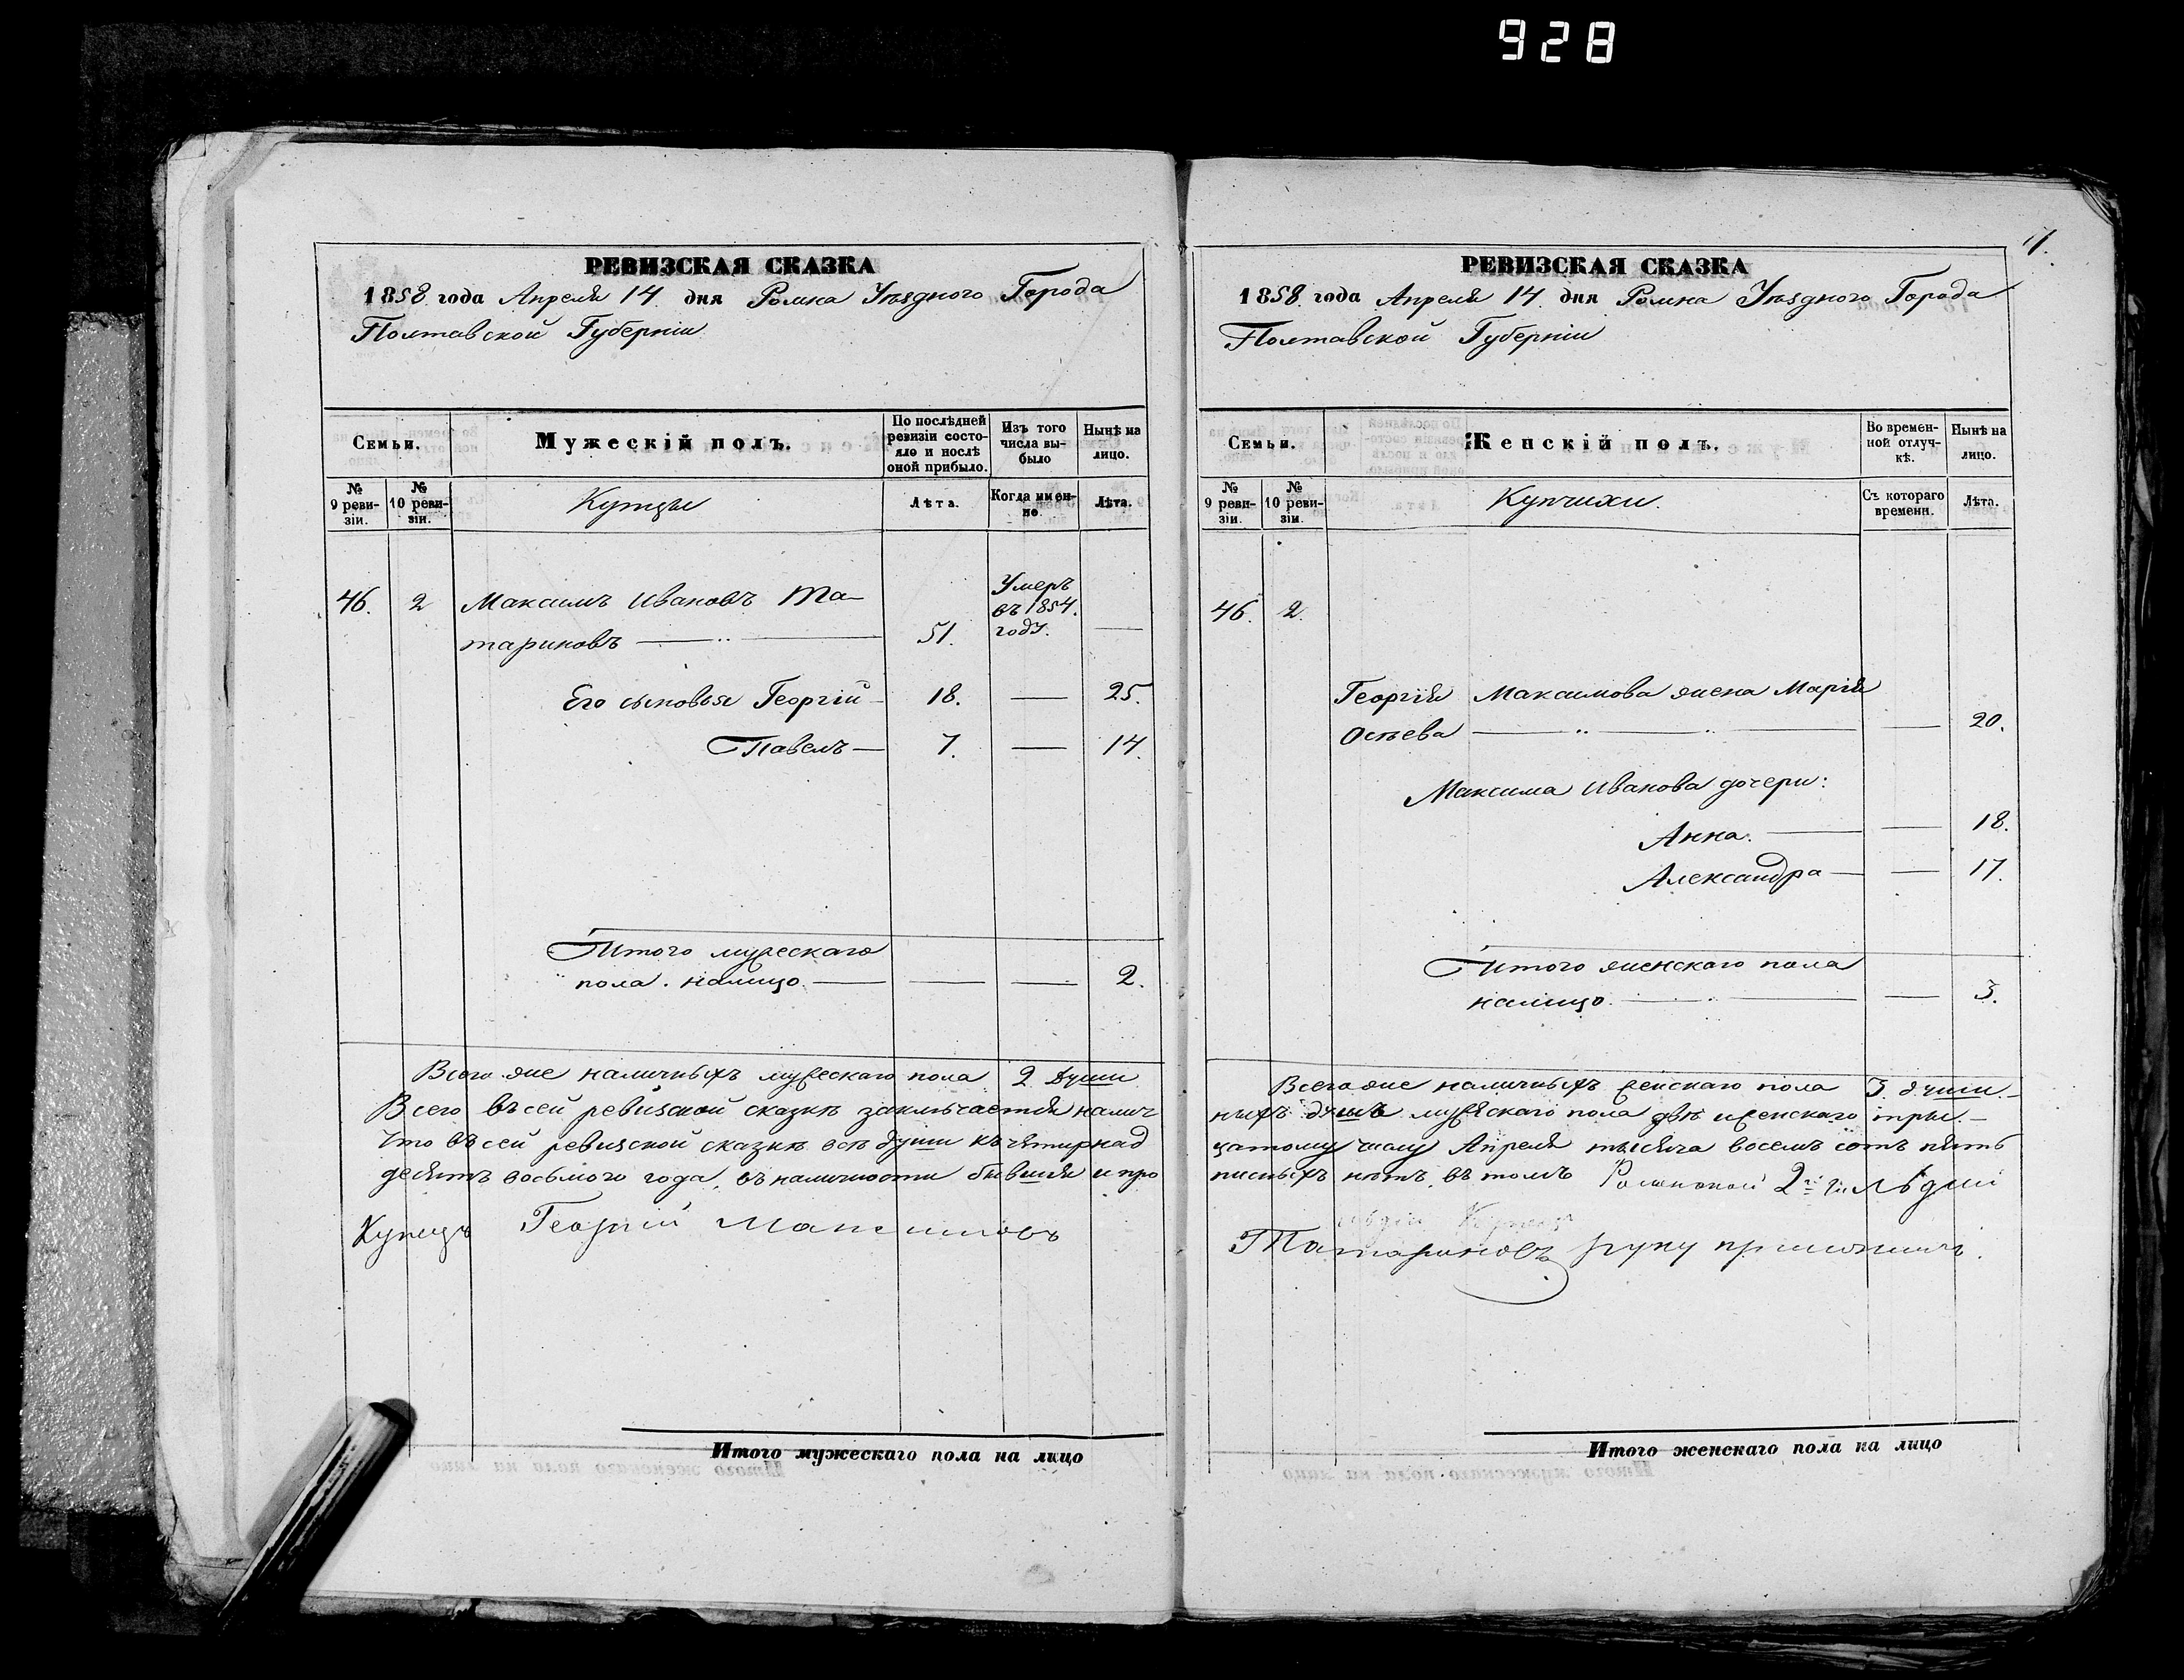 928
РЕВИЗСКАЯ СКАЗКА
1858 года Апреля 14 дня Ромна Уѣзднаго Города
Полтавской Губерніи
Семьи.
Мужескій полъ.
По послѣдней ревизіи состояло и послѣ оной прибыло.
Изъ того числа выбыло
Нынѣ на лицо.
№ 9 ревизіи.
№ 10 ревизіи.
Купцы
Лѣта.
Когда именно.
Лѣта.
46. 2 Максимъ Ивановъ Та-
тариновъ 51. Умеръ въ 1854. году.
Его сыновья Георгій 18. — 25.
Павелъ — 7. — 14.
Итого мужескаго
пола налицо. — — — 2.
Всего же наличныхъ мужескаго пола 2 души
Всего въ сей ревизской сказкѣ заключается налич
Что въ сей ревизской сказкѣ всѣ души къ четырнад
десятъ восьмого года, въ наличности бывшія и про
Купецъ Георгій Максимовъ
Итого мужескаго пола на лицо
РЕВИЗСКАЯ СКАЗКА
1858. года Апреля 14 дня Ромна Уѣзднаго Города
Полтавской Губерніи
Семьи.
Женскій полъ.
Во временной отлучкѣ.
Нынѣ на лицо.
№ 9 ревизіи.
№ 10 ревизіи.
Купчихи.
Съ котораго времени.
Лѣта.
46. 2.
Георгія Максимова жена Марія
Осѣева — — 20.
Максима Иванова дочери:
Анна. — — 18.
Александра — — 17.
Итого женскаго пола
налицо. — — 3.
Всего же наличныхъ женскаго пола 3. души. —
ныхъ душъ мужескаго пола двѣ и женскаго три. —
цатому числу Апреля тысяча восемъ сотъ пять
писныхъ нѣтъ, въ томъ Роменской 2й гильдіи
Татариновъ руку приложилъ.
Итого женскаго пола на лицо